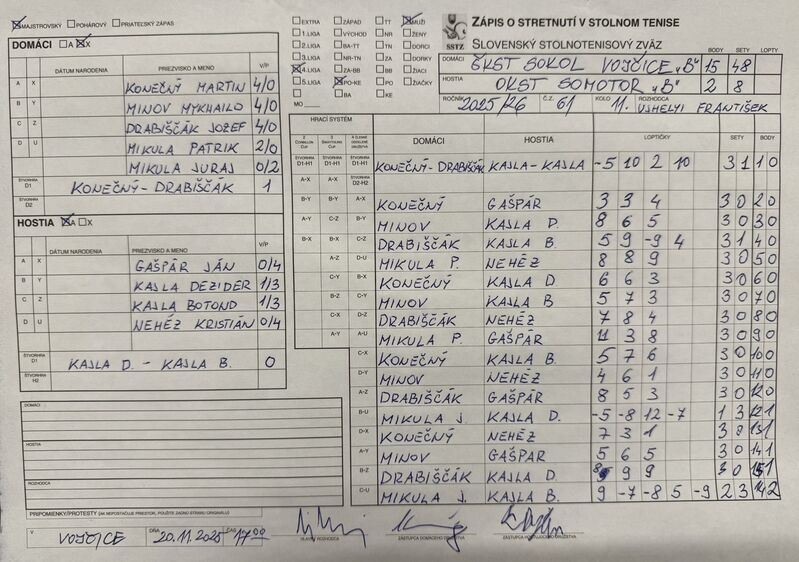 MAJSTROVSKÝ POHÁROVÝ PRIATEĽSKÝ ZÁPAS
EXTRA ZÁPAD TT MUŽI
1.LIGA VÝCHOD NR ŽENY
2.LIGA BA-TT TN DORCI
3.LIGA NR-TN ZA DORKY
4.LIGA ZA-BB BB ŽIACI
5.LIGA PO-KE PO ŽIAČKY
BA KE
MO
SSTZ
ZÁPIS O STRETNUTÍ V STOLNOM TENISE
SLOVENSKÝ STOLNOTENISOVÝ ZVÄZ
BODY SETY LOPTY
DOMÁCI ŠKST SOKOL VOJČICE "B" 15 48
HOSTIA OKST SOMOTOR "B" 2 8
ROČNÍK 2025/26 Č.Z. 61 KOLO 11. ROZHODCA UJHELYI FRANTIŠEK
DOMÁCI A X
DÁTUM NARODENIA PRIEZVISKO A MENO V/P
A X KONEČNÝ MARTIN 4/0
B Y MINOV MYKHAILO 4/0
C Z DRABIŠČÁK JOZEF 4/0
D U MIKULA PATRIK 2/0
MIKULA JURAJ 0/2
ŠTVORHRA D1 KONEČNÝ - DRABIŠČÁK 1
ŠTVORHRA D2
HOSTIA A X
DÁTUM NARODENIA PRIEZVISKO A MENO V/P
A X GAŠPÁR JÁN 0/4
B Y KAJLA DEZIDER 1/3
C Z KAJLA BOTOND 1/3
D U NEHÉZ KRISTIÁN 0/4
ŠTVORHRA D1 KAJLA D. - KAJLA B. 0
ŠTVORHRA H2
DOMÁCI
HOSTIA
ROZHODCA
PRIPOMIENKY/PROTESTY (AK NEPOSTAČUJE PRIESTOR, POUŽITE ZADNÚ STRANU ORIGINÁLU)
HRACÍ SYSTÉM
DOMÁCI HOSTIA LOPTIČKY SETY BODY
D1-H1 D1-H1 D1-H1 KONEČNÝ-DRABIŠČÁK KAJLA-KAJLA -5 10 2 10 3 1 1 0
A-X A-X D2-H2
B-Y B-Y A-X KONEČNÝ GAŠPÁR 3 3 4 3 0 2 0
A-Y C-Z B-Y MINOV KAJLA D. 8 6 5 3 0 3 0
B-X B-X C-Z DRABIŠČÁK KAJLA B. 5 9 -9 4 3 1 4 0
A-Z D-U MIKULA P. NEHÉZ 8 8 9 3 0 5 0
C-Y B-X KONEČNÝ KAJLA D 6 6 3 3 0 6 0
B-Z C-Y MINOV KAJLA B 5 7 3 3 0 7 0
C-X D-Z DRABIŠČÁK NEHÉZ 7 8 4 3 0 8 0
A-Y A-U MIKULA P. GAŠPÁR 11 3 8 3 0 9 0
C-X KONEČNÝ KAJLA B. 5 7 6 3 0 10 0
D-Y MINOV NEHÉZ 4 6 1 3 0 11 0
A-Z DRABIŠČÁK GAŠPÁR 8 5 3 3 0 12 0
B-U MIKULA J. KAJLA D. -5 -8 12 -7 1 3 12 1
D-X KONEČNÝ NEHÉZ 7 3 1 3 0 13 1
A-Y MINOV GAŠPAR 5 6 5 3 0 14 1
B-Z DRABIŠČÁK KAJLA D 9 9 3 0 15 1
C-U MIKULA J. KAJLA B. 9 -7 -8 5 -9 2 3 2
V VOJČICE DŇA 20.11.2025 ČAS 17 00
HLAVNÝ ROZHODCA ZÁSTUPCA DOMÁCEHO DRUŽSTVA ZÁSTUPCA HOSŤUJÚCEHO DRUŽSTVA